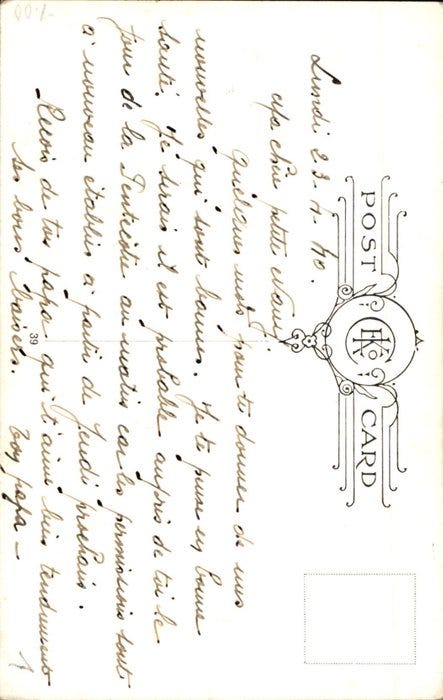 POST CARD
HKCo
Lundi 23. 4. 40.
Ma chère petite Nani,
Quelques mots pour te donner de mes
nouvelles qui sont bonnes. Je te pense en bonne
santé. Je serais il est probable auprès de toi le
jour de la Pentecôte au matin car les permissions sont
à nouveau établies à partir de Jeudi prochain.
Recois de ton papa qui t'aime bien tendrement
ses bons baisers.
Ton papa —
39
1.00